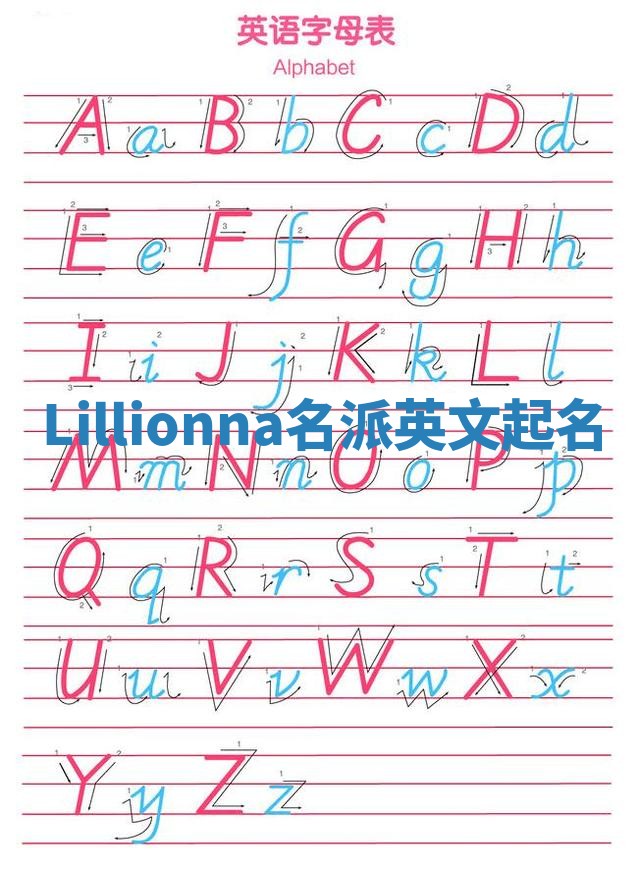 英语字母表
Alphabet
A a B b C c D d
E e F f G g H h
I i J j K k L l
Lillionna名派英文起名
M m N n O o P p
Q q R r S s T t
U u V v W w X x
Y y Z z